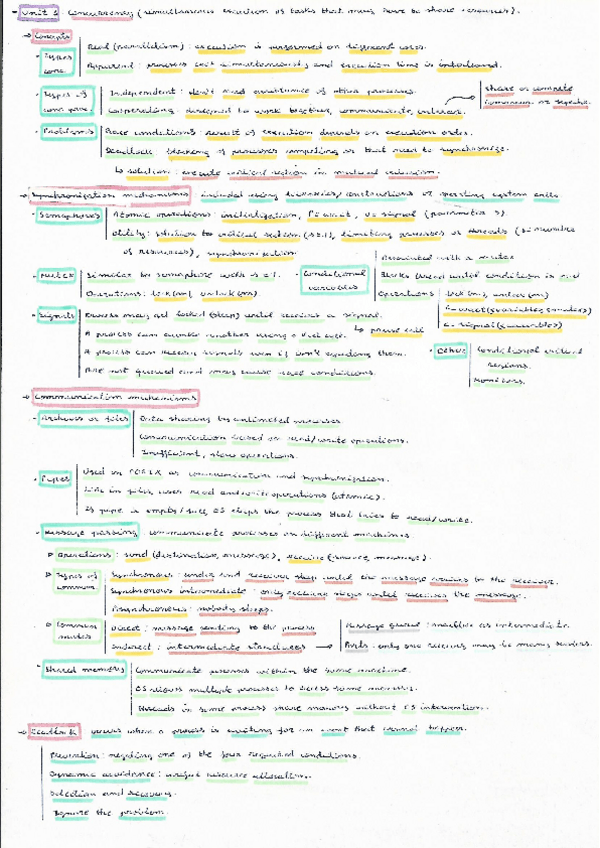 Unit 5 Concurrency (simultaneous execution of tasks that may have to share resources).
Concepts
Types conc.
Real (parallelism): execution is performed on different cores.
Apparent: processes exist simultaneously and execution time is
Types of conc. proc.
Independent: don't need assistance of other processes.
Cooperating: designed to work together, communicate, interact.
share or compete
Problems
Race conditions: result of execution depends on execution order.
Deadlock: blocking of processes competing or that need to synchronize.
solution: execute critical section in mutual exclusion
Synchronization mechanisms included using libraries/instructions or operating system calls
Semaphores
Atomic operations: initialization, wait, signal (parameter s).
Utility: solution to critical section (s=1), limiting processes or threads (s = number
of resources), synchronization
Mutex
Similar to semaphore with s=1.
Operations: lock(m), unlock(m).
Conditional variables
Associated with a mutex
Blocks thread until condition is
Operations
lock(m), unlock(m)
c-wait(variable, mutex)
c-signal(variable)
Signals
Process may get locked (sleep) until receives a signal.
pause call
A process can another using a call.
A process can receive signals even if isn't expecting them.
Are not queued and may cause race conditions.
Other
Conditional critical
regions.
Monitors.
Communication mechanisms
Archives or files
Data sharing by unlimited processes.
Communication based on read/write operations.
Inefficient, slow operations.
Pipes
Used on POSIX as communication and synchronization.
Like in files, uses read and write operations (atomic).
If pipe is empty/full, OS sleeps the process that tries to read/write.
Message passing: communicate processes on different machines
Operations: send (destination, message), receive (source, message).
Types of commun
Synchronous: sender and receiver sleep until the message arrives to the receiver.
Synchronous intermediate: only receiver sleeps until receives the message.
Asynchronous: nobody sleeps.
Direct: message sending to the process
Indirect: intermediate structures
Message queue: mailbox as intermediate.
Ports: only one receiver, may be many senders.
Shared memory
Communicate processes within the same machine.
OS allows multiple processes to access same memory.
Threads in same process share memory without OS intervention.
Deadlock occurs when a process is waiting for an event that cannot happen.
Prevention: negating one of the four required conditions.
Dynamic avoidance: resource allocation.
Detection and recovery.
Ignore the problem.